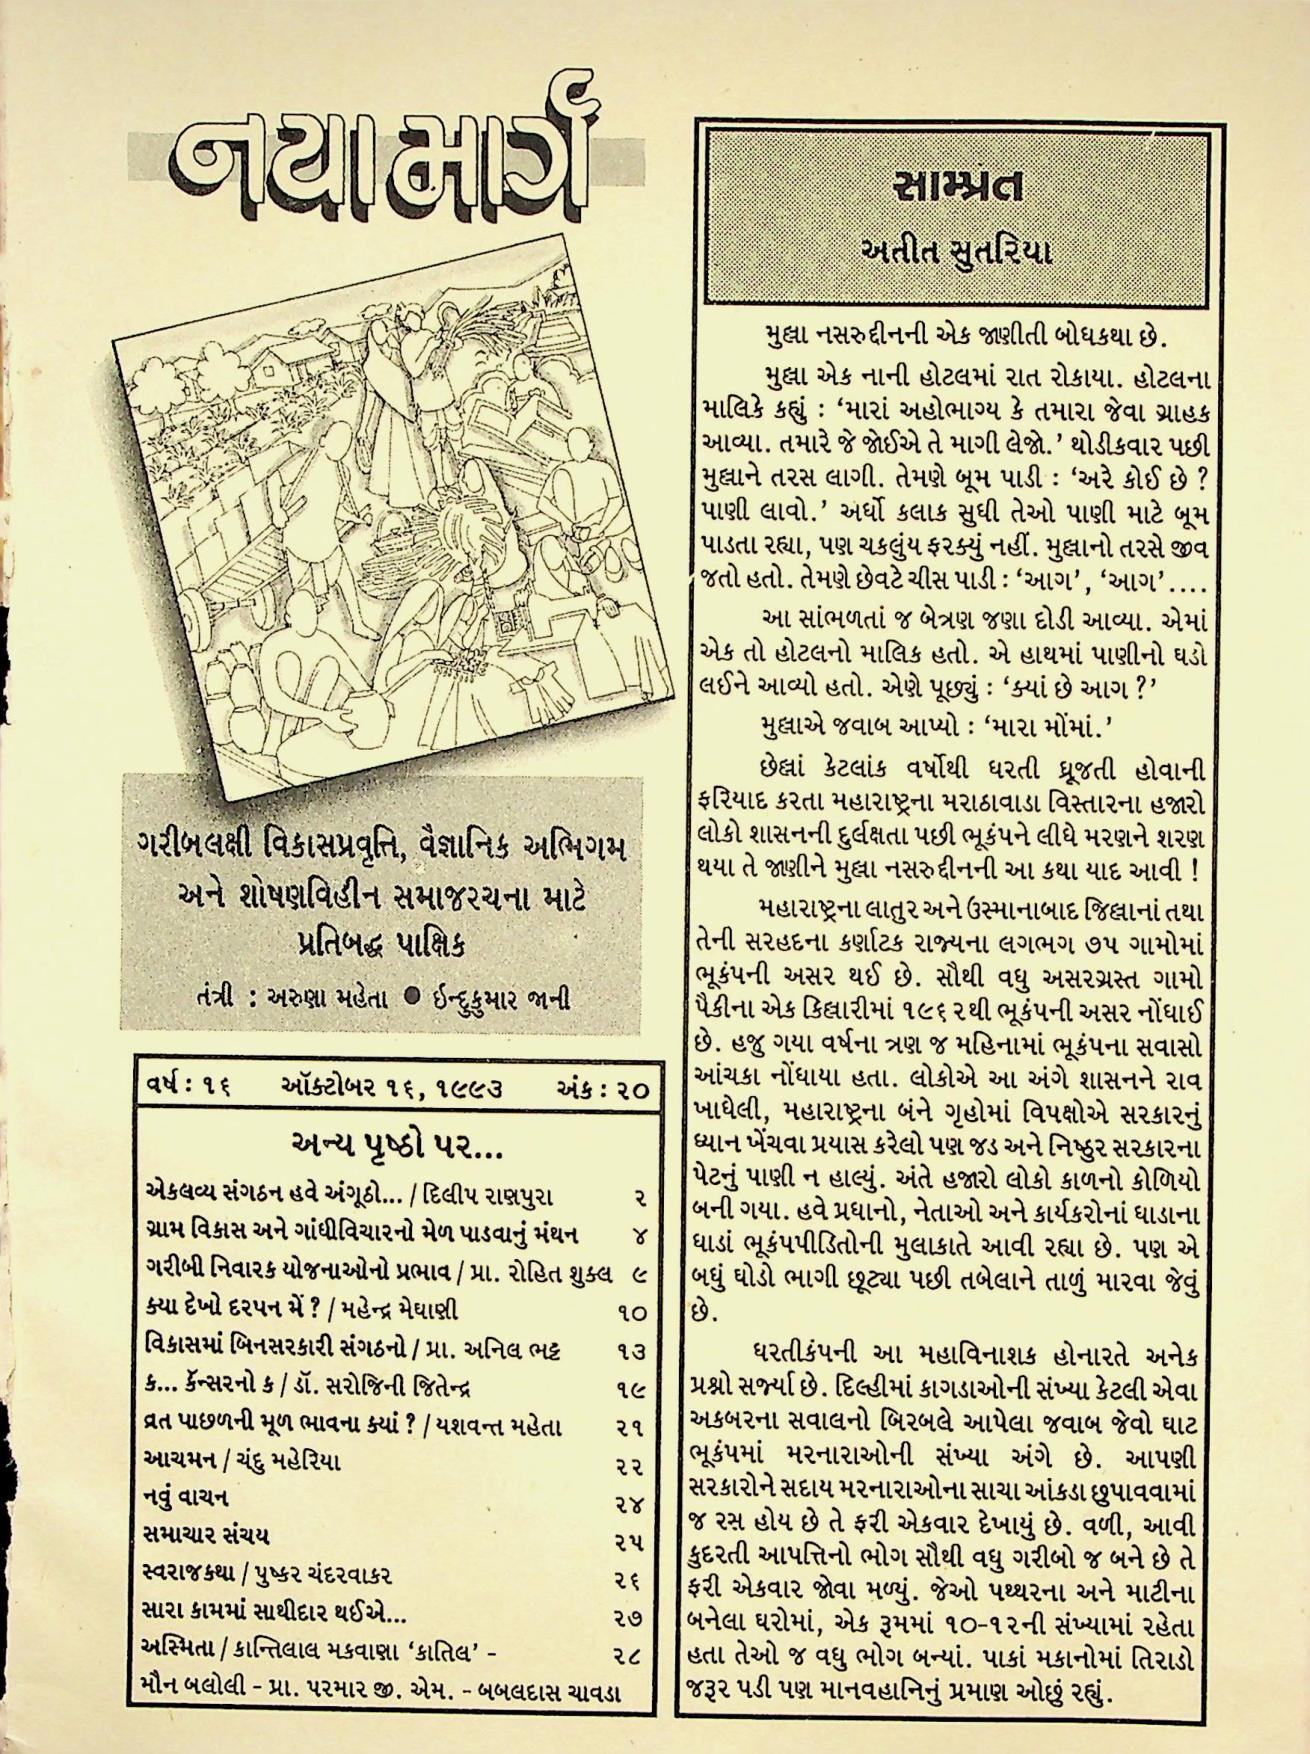 નયા માર્ગ
ગરીબલક્ષી વિકાસપ્રવૃત્તિ, વૈજ્ઞાનિક અભિગમ
અને શોષણવિહીન સમાજરચના માટે
પ્રતિબદ્ધ પાક્ષિક
તંત્રી : અરુણા મહેતા ● ઇન્દુકુમાર જાની
વર્ષ : ૧૬ ઑક્ટોબર ૧૬, ૧૯૯૩ અંક : ૨૦
અન્ય પૃષ્ઠો પર...
એકલવ્ય સંગઠન હવે અંગૂઠો... / દિલીપ રાણપુરા ૨
ગ્રામ વિકાસ અને ગાંધીવિચારનો મેળ પાડવાનું મંથન ૪
ગરીબી નિવારક યોજનાઓનો પ્રભાવ / પ્રા. રોહિત શુક્લ ૯
ક્યા દેખો દરપન મેં ? / મહેન્દ્ર મેઘાણી ૧૦
વિકાસમાં બિનસરકારી સંગઠનો / પ્રા. અનિલ ભટ્ટ ૧૩
ક... કૅન્સરનો ક / ડૉ. સરોજિની જિતેન્દ્ર ૧૯
વ્રત પાછળની મૂળ ભાવના ક્યાં ? / યશવન્ત મહેતા ૨૧
આચમન / ચંદુ મહેરિયા ૨૨
નવું વાચન ૨૪
સમાચાર સંચય ૨૫
સ્વરાજકથા / પુષ્કર ચંદરવાકર ૨૬
સારા કામમાં સાથીદાર થઈએ... ૨૭
અસ્મિતા / કાન્તિલાલ મકવાણા ‘કાતિલ’ - ૨૮
મૌન બલોલી - પ્રા. પરમાર જી. એમ. - બબલદાસ ચાવડા
સામ્પ્રત
અતીત સુતરિયા
મુલ્લા નસરુદ્દીનની એક જાણીતી બોધકથા છે.
મુલ્લા એક નાની હોટલમાં રાત રોકાયા. હોટલના
માલિકે કહ્યું : ‘મારાં અહોભાગ્ય કે તમારા જેવા ગ્રાહક
આવ્યા. તમારે જે જોઈએ તે માગી લેજો.’ થોડીકવાર પછી
મુલ્લાને તરસ લાગી. તેમણે બૂમ પાડી : ‘અરે કોઈ છે ?
પાણી લાવો.’ અર્ધો કલાક સુધી તેઓ પાણી માટે બૂમ
પાડતા રહ્યા, પણ ચકલુંય ફરક્યું નહીં. મુલ્લાનો તરસે જીવ
જતો હતો. તેમણે છેવટે ચીસ પાડી : ‘આગ’, ‘આગ’....
આ સાંભળતાં જ બેત્રણ જણા દોડી આવ્યા. એમાં
એક તો હોટલનો માલિક હતો. એ હાથમાં પાણીનો ઘડો
લઈને આવ્યો હતો. એણે પૂછ્યું : ‘ક્યાં છે આગ ?’
મુલ્લાએ જવાબ આપ્યો : ‘મારા મોંમાં.’
છેલ્લાં કેટલાંક વર્ષોથી ધરતી ધ્રૂજતી હોવાની
ફરિયાદ કરતા મહારાષ્ટ્રના મરાઠાવાડા વિસ્તારના હજારો
લોકો શાસનની દુર્લક્ષતા પછી ભૂકંપને લીધે મરણને શરણ
થયા તે જાણીને મુલ્લા નસરુદ્દીનની આ કથા યાદ આવી !
મહારાષ્ટ્રના લાતુર અને ઉસ્માનાબાદ જિલ્લાનાં તથા
તેની સરહદના કર્ણાટક રાજ્યના લગભગ ૭૫ ગામોમાં
ભૂકંપની અસર થઈ છે. સૌથી વધુ અસરગ્રસ્ત ગામો
પૈકીના એક કિલ્લારીમાં ૧૯૬૨થી ભૂકંપની અસર નોંધાઈ
છે. હજુ ગયા વર્ષના ત્રણ જ મહિનામાં ભૂકંપના સવાસો
આંચકા નોંધાયા હતા. લોકોએ આ અંગે શાસનને રાવ
ખાધેલી, મહારાષ્ટ્રના બંને ગૃહોમાં વિપક્ષોએ સરકારનું
ધ્યાન ખેંચવા પ્રયાસ કરેલો પણ જડ અને નિષ્ઠુર સરકારના
પેટનું પાણી ન હાલ્યું. અંતે હજારો લોકો કાળનો કોળિયો
બની ગયા. હવે પ્રધાનો, નેતાઓ અને કાર્યકરોનાં ધાડાના
ધાડાં ભૂકંપપીડિતોની મુલાકાતે આવી રહ્યા છે. પણ એ
બધું ઘોડો ભાગી છૂટ્યા પછી તબેલાને તાળું મારવા જેવું
છે.
ધરતીકંપની આ મહાવિનાશક હોનારતે અનેક
પ્રશ્નો સર્જ્યા છે. દિલ્હીમાં કાગડાઓની સંખ્યા કેટલી એવા
અકબરના સવાલનો બિરબલે આપેલા જવાબ જેવો ઘાટ
ભૂકંપમાં મરનારાઓની સંખ્યા અંગે છે. આપણી
સરકારોને સદાય મરનારાઓના સાચા આંકડા છુપાવવામાં
જ રસ હોય છે તે ફરી એકવાર દેખાયું છે. વળી, આવી
કુદરતી આપત્તિનો ભોગ સૌથી વધુ ગરીબો જ બને છે તે
ફરી એકવાર જોવા મળ્યું. જેઓ પથ્થરના અને માટીના
બનેલા ઘરોમાં, એક રૂમમાં ૧૦-૧૨ની સંખ્યામાં રહેતા
હતા તેઓ જ વધુ ભોગ બન્યાં. પાકાં મકાનોમાં તિરાડો
જરૂર પડી પણ માનવહાનિનું પ્રમાણ ઓછું રહ્યું.